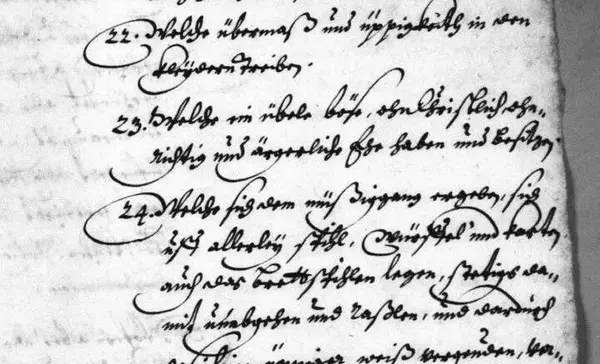 22. Welche übermaß und üppigkeith in den
kleydern treiben.
23. Welche ein übele böse, ohnChristlich, ohn-
richtig und ärgerliche Ehe haben und besitzen.
24. Welche sich dem müßiggang ergeben, sich
uff allerley spihl, Würffel und karten
auch das brettspihlen legen, stetigs da-
mit umbgehen und raßlen, und dardurch
weiß vergeuden, ver-